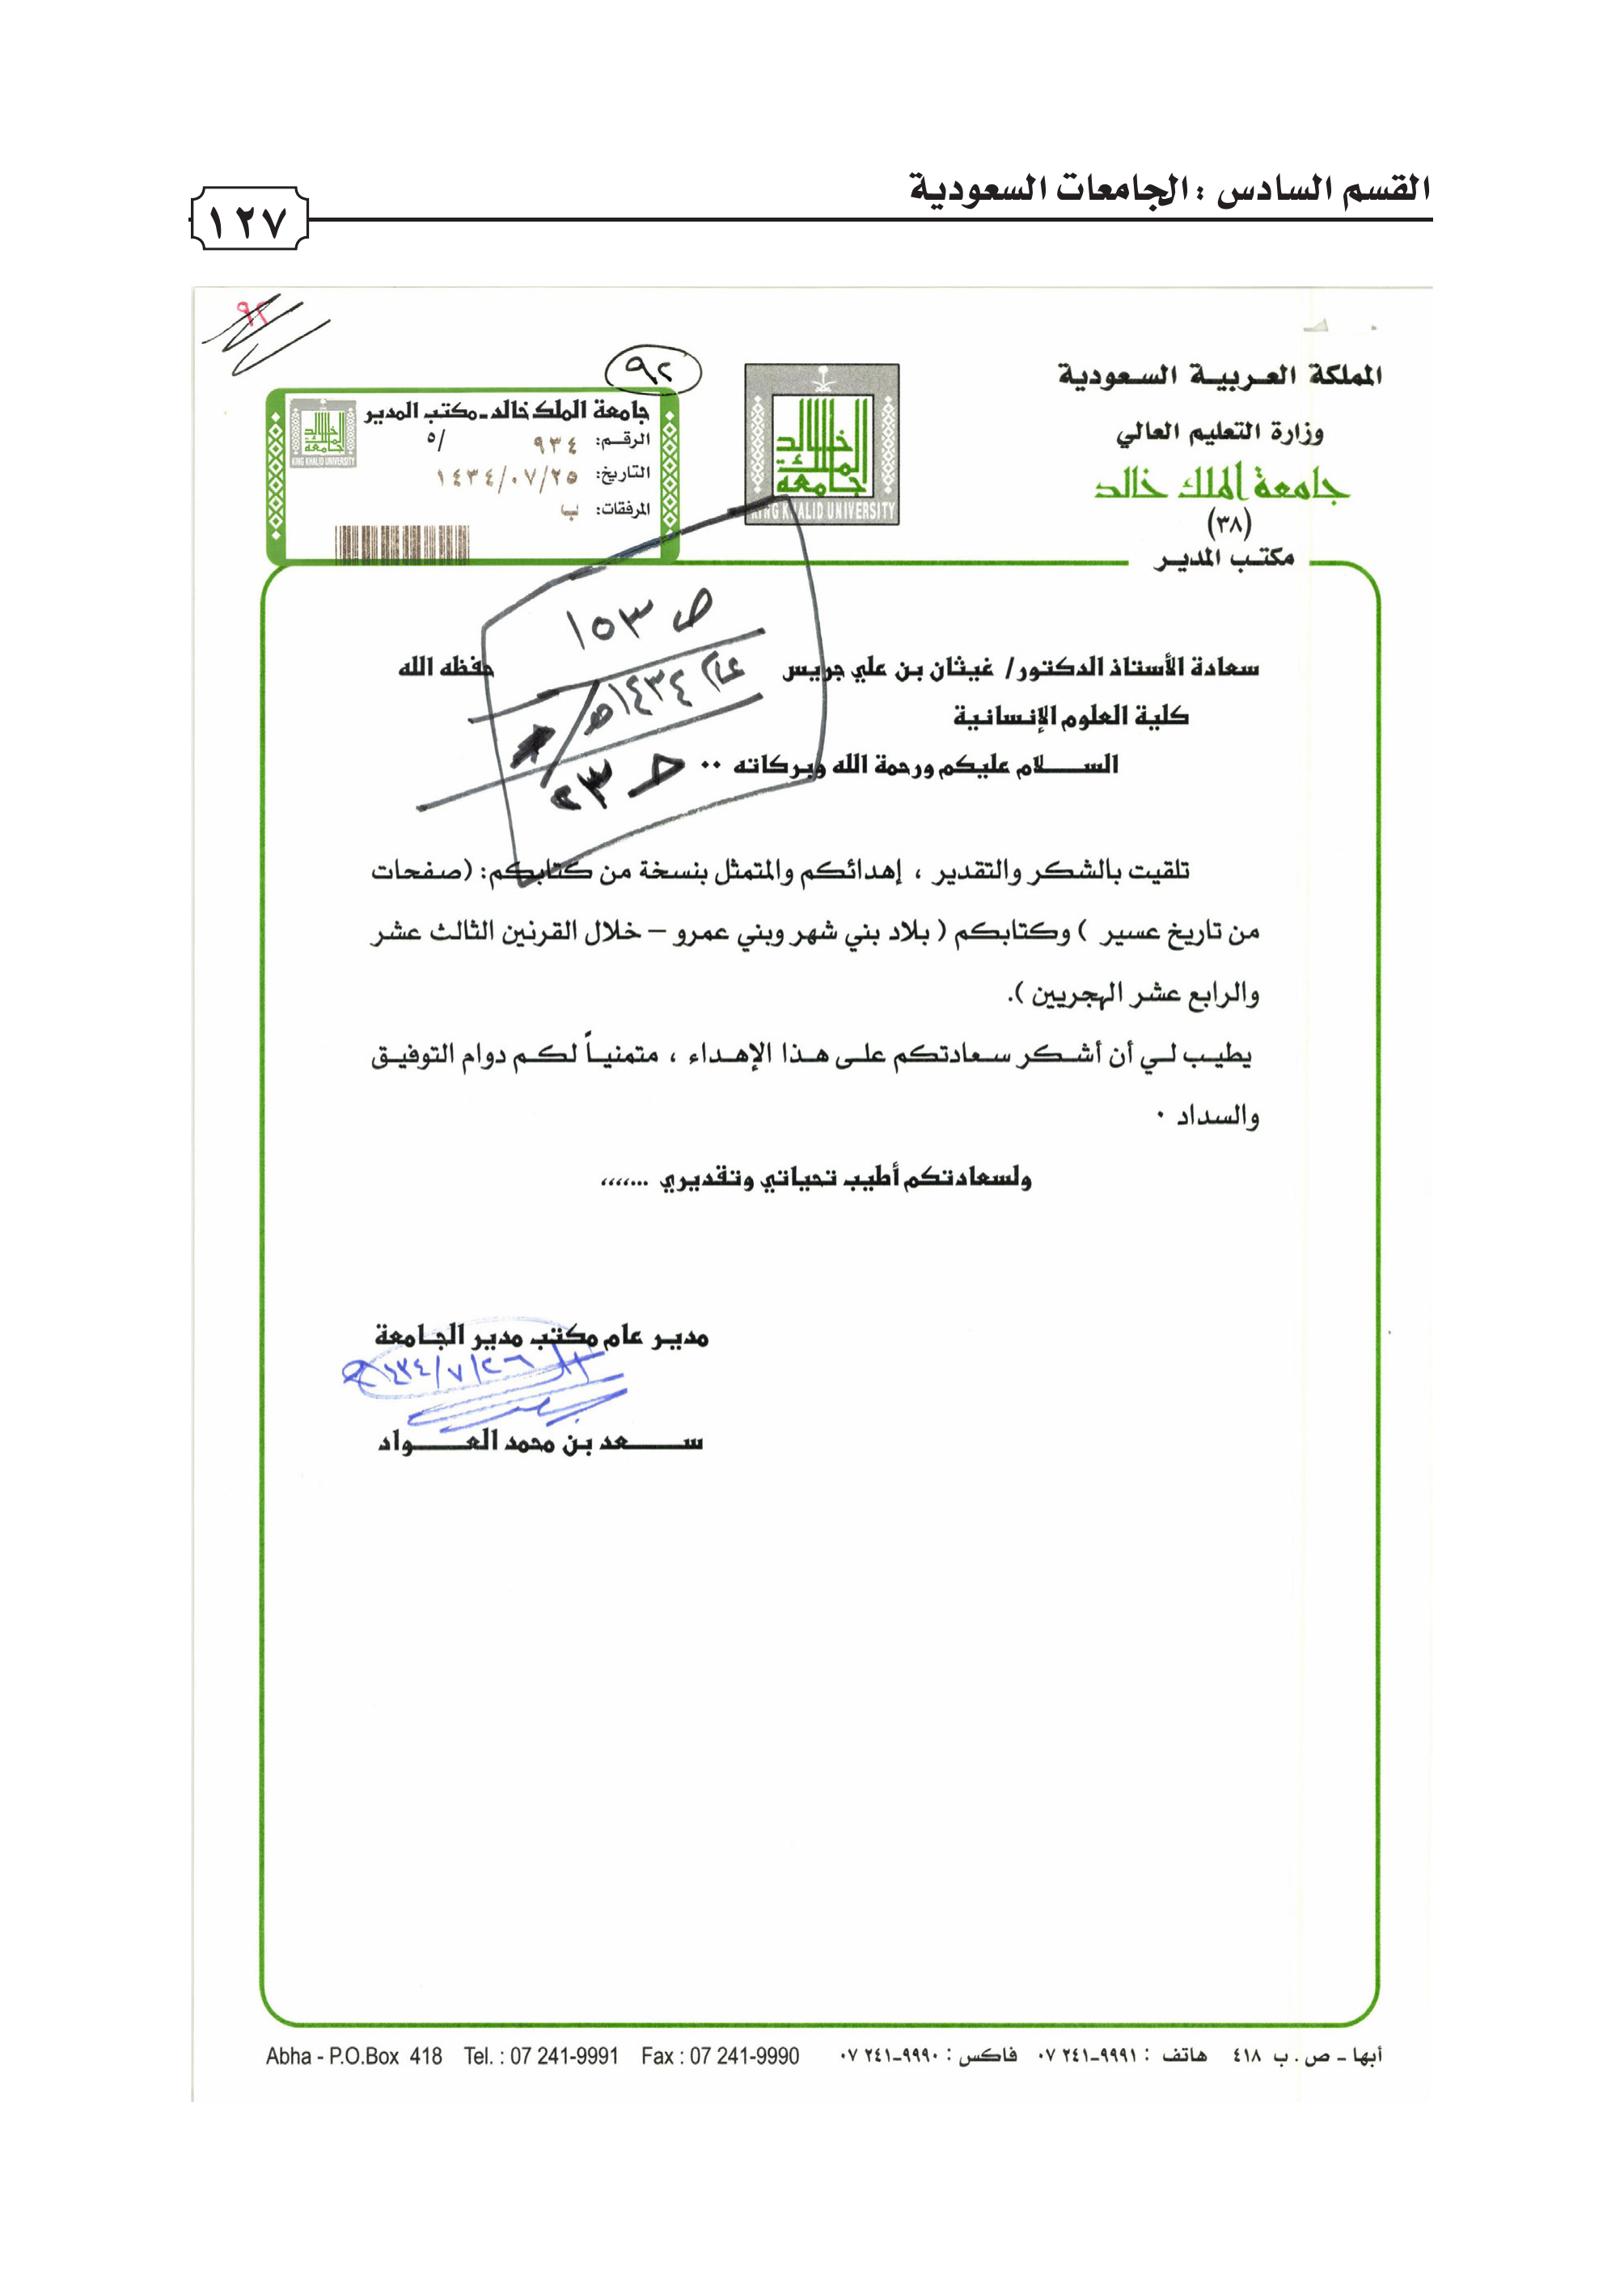 القسم السادس : الجامعات السعودية
١٢٧
٩٢
٩٢
المملكة العربية السعودية
وزارة التعليم العالي
جامعة الملك خالد
(٣٨)
مكتب المدير
جامعة الملك خالد
KING KHALID UNIVERSITY
جامعة الملك خالد - مكتب المدير
الرقم: ٩٣٤ /٥
التاريخ: ١٤٣٤/٠٧/٢٥
المرفقات: ب
KING KHALID UNIVERSITY
ص ١٥٣
عام ١٤٣٤هـ
ح ٢٣
سعادة الأستاذ الدكتور/ غيثان بن علي جريس حفظه الله
كلية العلوم الإنسانية
الســـلام عليكم ورحمة الله وبركاته ٠٠
تلقيت بالشكر والتقدير ، إهدائكم والمتمثل بنسخة من كتابكم: (صفحات
من تاريخ عسير ) وكتابكم ( بلاد بني شهر وبني عمرو – خلال القرنين الثالث عشر
والرابع عشر الهجريين ).
يطيب لي أن أشكر سعادتكم على هذا الإهداء ، متمنياً لكم دوام التوفيق
والسداد ٠
ولسعادتكم أطيب تحياتي وتقديري ...،،،،
مدير عام مكتب مدير الجامعة
١٤٣٤/٧/٢٦
ســـعد بن محمد العـــواد
أبها - ص . ب ٤١٨ هاتف : ٩٩٩١-٢٤١ ٠٧ فاكس : ٩٩٩٠-٢٤١ ٠٧
Abha - P.O.Box 418 Tel. : 07 241-9991 Fax : 07 241-9990